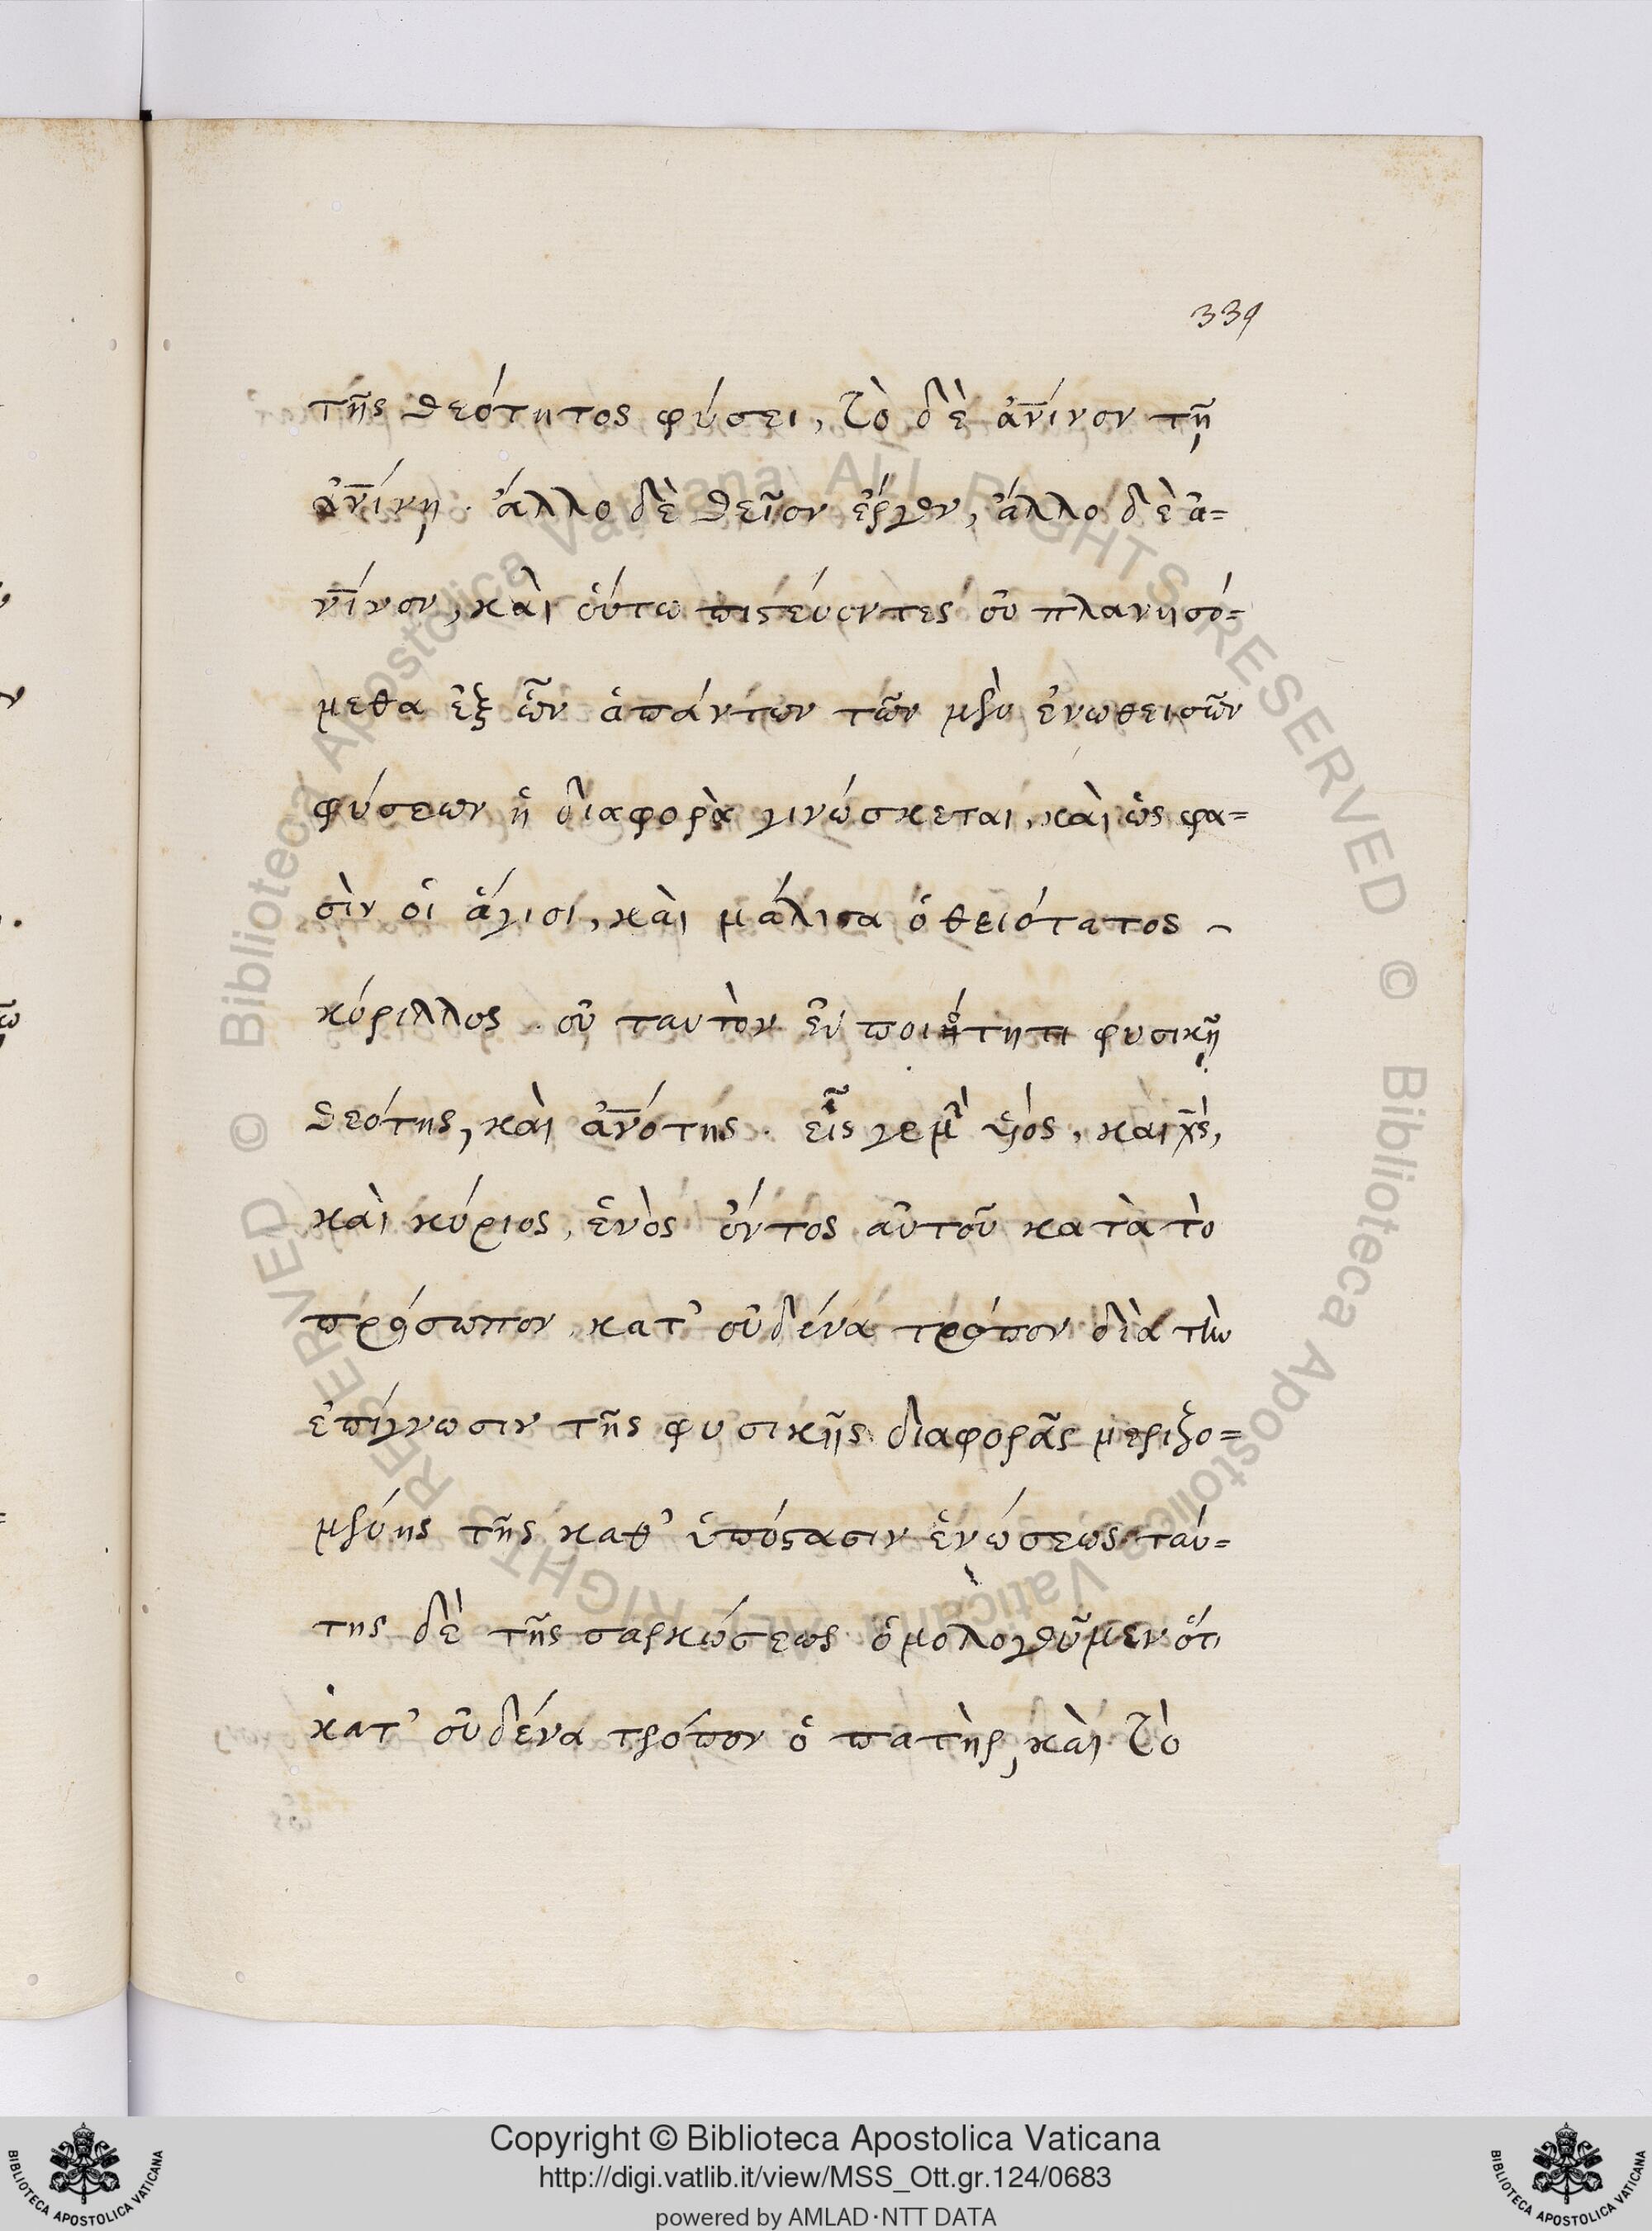 339
τῆς θεότητος φύσει, τὸ δὲ ἀν̅ίνον τῇ
ἀν̅ίνῃ. ἄλλο δὲ θεῖον ἔργον, ἄλλο δὲ ἀ=
ν̅ίνον, καὶ οὕτω πιστεύοντες οὐ πλανησό=
μεθα ἐξ ὧν ἁπάντων τῶν μὲν ἑνωθεισῶν
φύσεων ἡ διαφορὰ γινώσκεται, καὶ ὥς φα=
σὶν οἱ ἅγιοι, καὶ μάλιστα ὁ θειότατος
κύριλλος. οὐ ταυτὸν ἐν ποιότητι φυσικῇ
θεότης, καὶ ἀν̅ότης. εἷς γε μὴ υἱὸς, καὶ χ̅ς̀,
καὶ κύριος, ἑνὸς ὄντος αὐτοῦ κατὰ τὸ
πρόσωπον, κατ' οὐδένα τρόπον διὰ τὴν
ἐπίγνωσιν τῆς φυσικῆς διαφορᾶς μεριζο=
μένης τῆς καθ' ὑπόστασιν ἑνώσεως ταύ=
της δὲ τῆς σαρκώσεως ὁμολογοῦμεν ὅτι
κατ' οὐδένα τρόπον ὁ πατὴρ, καὶ τὸ
Copyright © Biblioteca Apostolica Vaticana
http://digi.vatlib.it/view/MSS_Ott.gr.124/0683
powered by AMLAD·NTT DATA
BIBLIOTECA APOSTOLICA VATICANA
BIBLIOTECA APOSTOLICA VATICANA
© Biblioteca Apostolica Vaticana ALL RIGHTS RESERVED
© Biblioteca Apostolica Vaticana ALL RIGHTS RESERVED